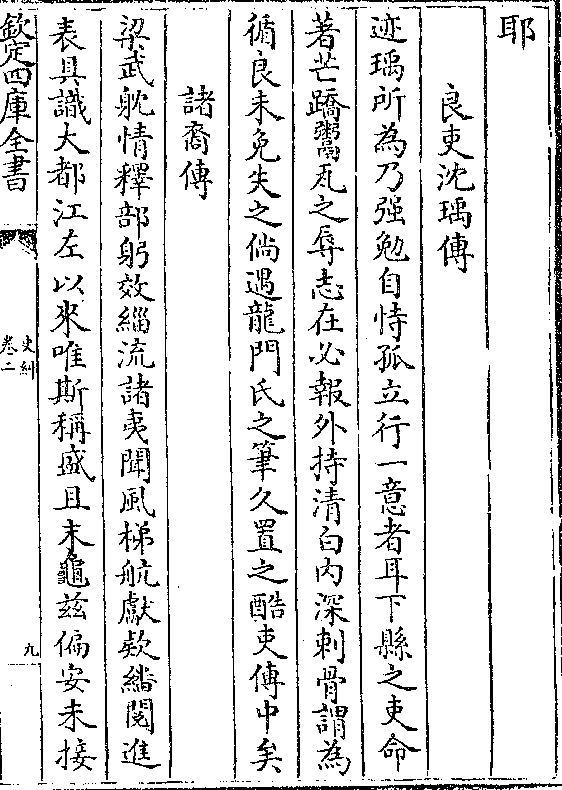 耶
良吏沈瑀傳
迹瑀所為乃强勉自恃孤立行一意者耳下縣之吏命
著芒蹻鬻瓦之辱志在必報外持清白内深刺骨謂為
循良未免失之倘遇龍門氏之筆久置之酷吏傳中矣
諸裔傳
梁武躭情釋部躬效緇流諸夷聞風梯航獻欵繙閱進
表具識大都江左以來唯斯稱盛且末龜兹偏安未接
欽定四庫全書
史糾
卷二
九